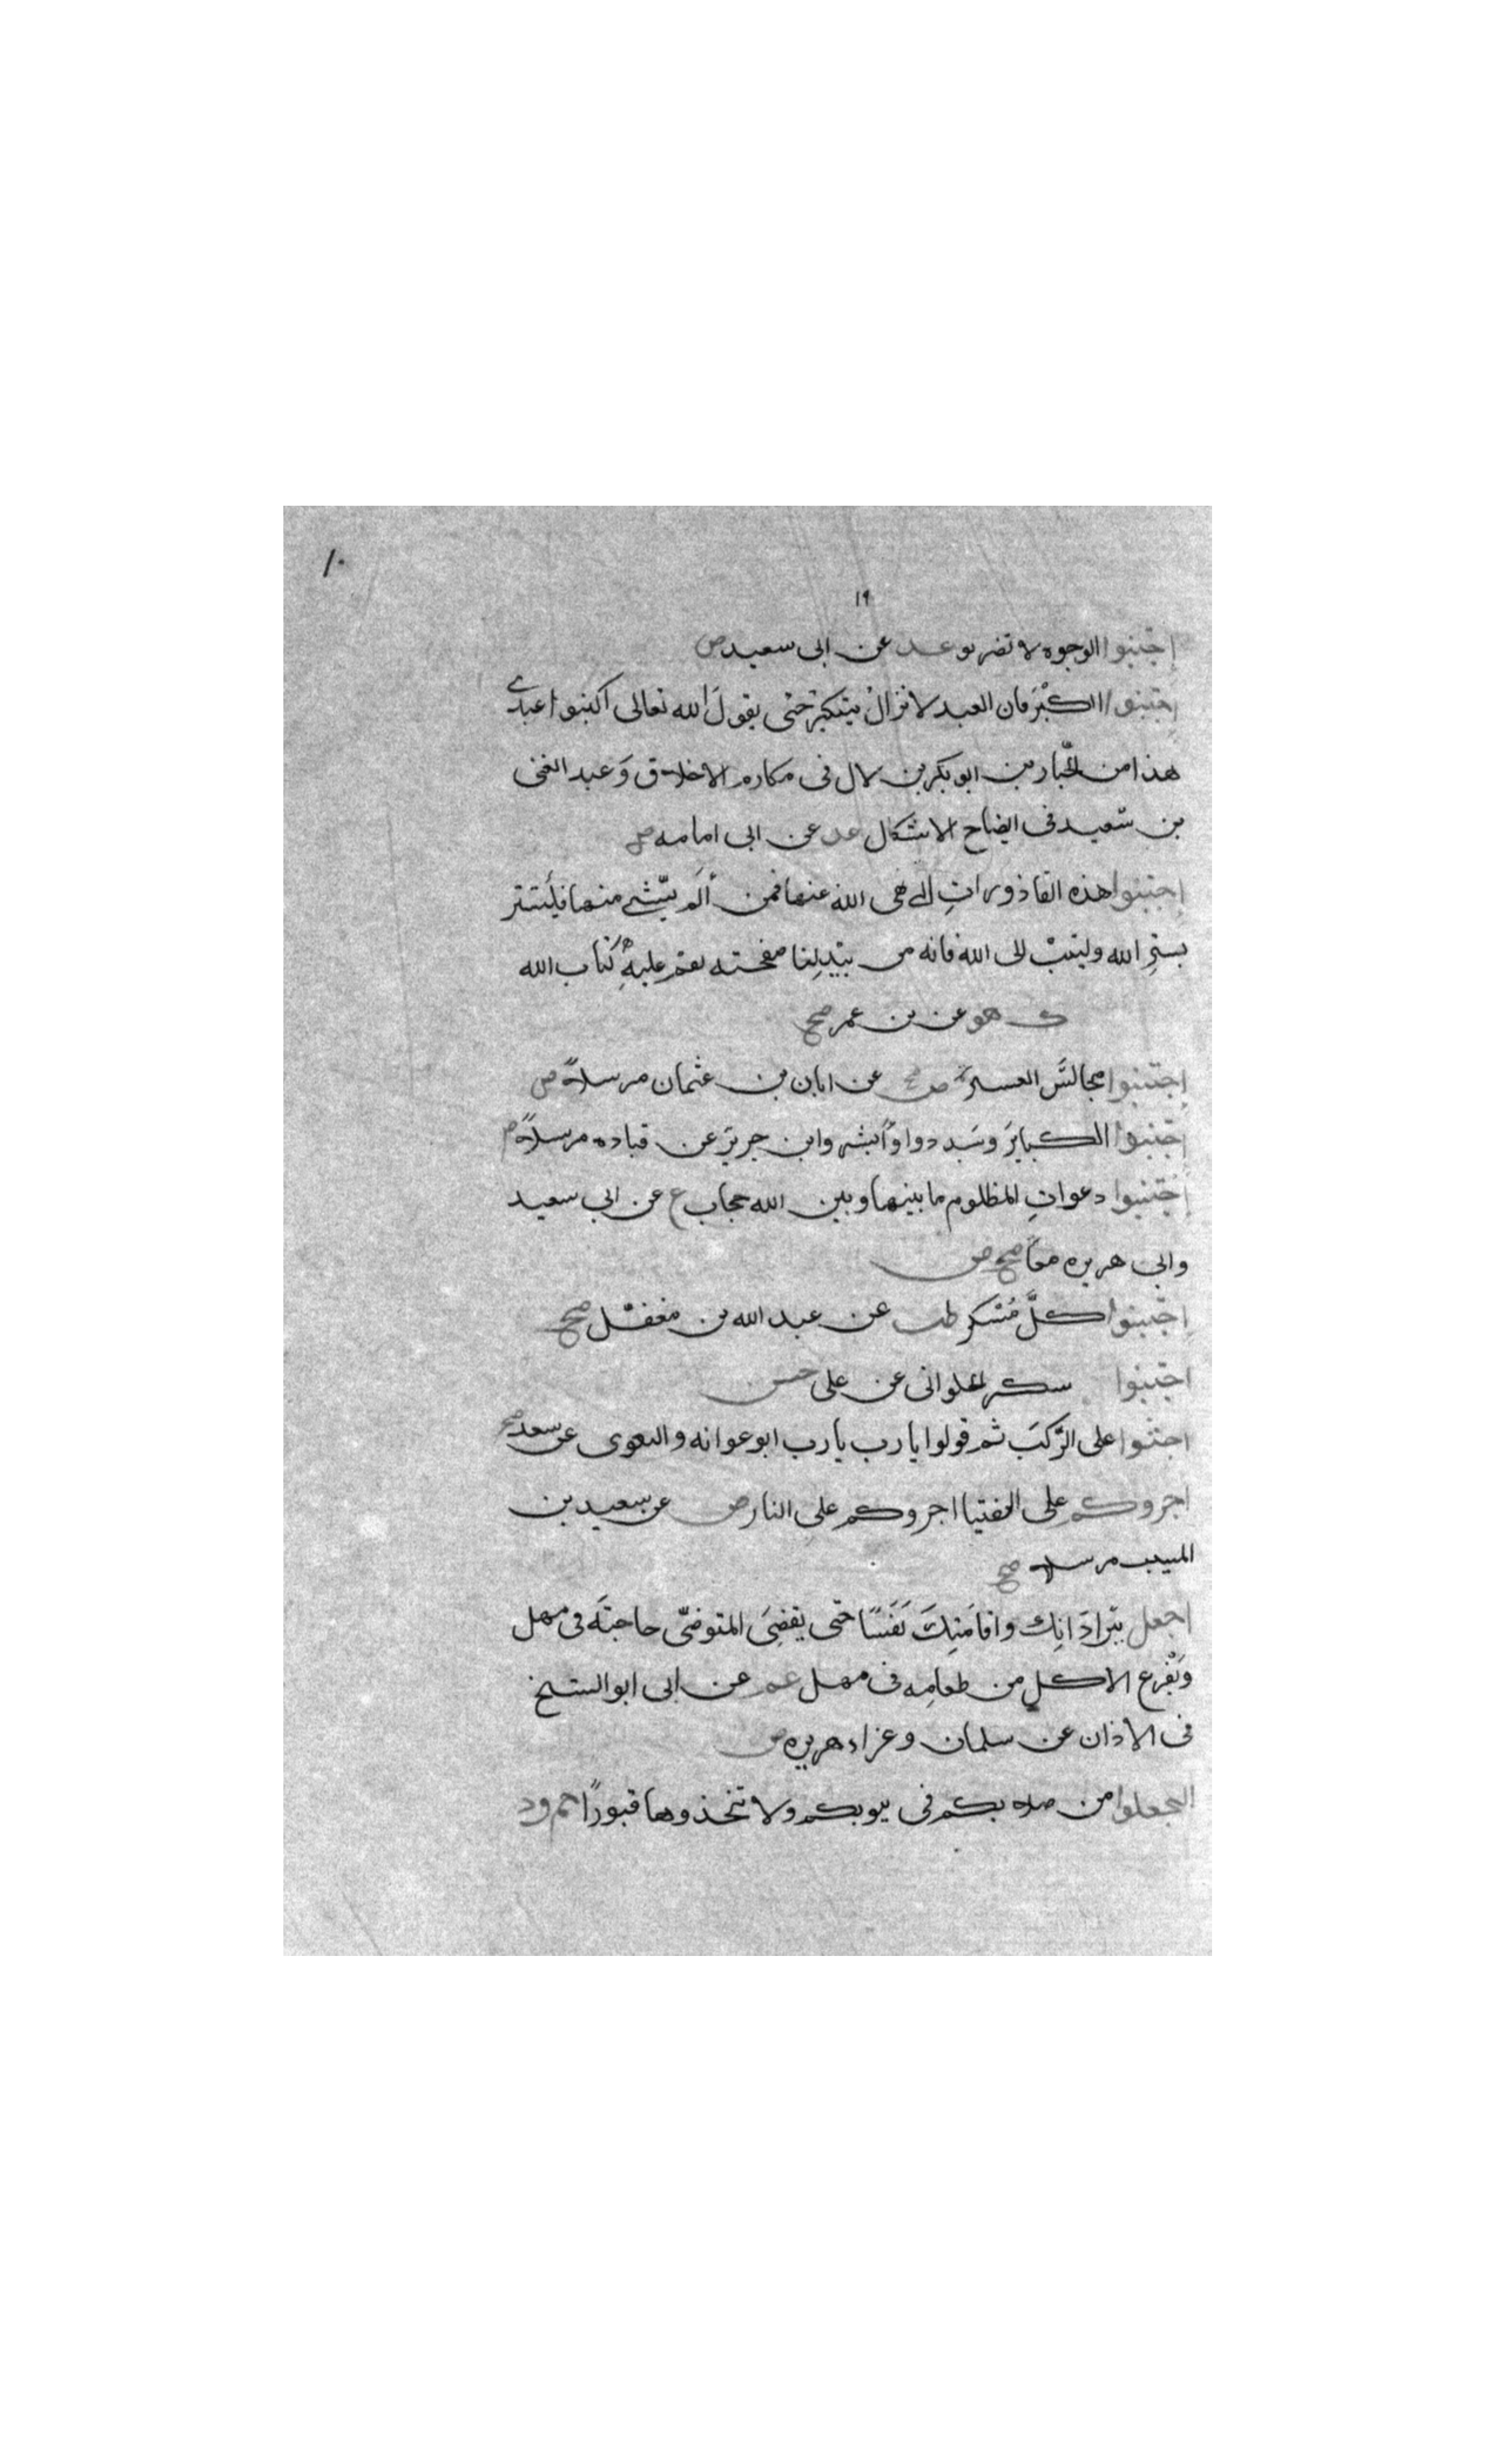 ١٠
١٩
اجتنبوا الوجوه لا تضربو عد عن ابى سعيد ض
اجتنبوا الكبر فان العبد لا نزال يتكبر حتى يقول الله تعالى اكتبوا عبدى
هذا من الجبارين ابو بكر بن لال فى مكارم الاخلاق وعبد الغنى
بن سعيد فى ايضاح الاشكال عد عن ابى امامه ض
اجتنبوا هذه القاذورات التى نهى الله عنها فمن ألم بشى منها فليستتر
بستر الله وليتب الى الله فانه من يبد لنا صفحته نقم عليه كتاب الله
ك هق عن بن عمر صح
اجتنبوا مجالس العسيرة ص عن ابان بن عثمان مرسلا ض
اجتنبوا الكباير وسددوا وأبشر وابن جرير عن قتاده مرسلا
اجتنبوا دعوات المظلوم ما بينها وبين الله حجاب ع عن ابي سعيد
وابى هريره معا صح ض
اجتنبوا كل مسكر طب عن عبد الله بن مغفل صح
اجتنبوا سكر الحلوانى عن على حسن
اجثوا على الركب ثم قولوا يا رب يا رب ابو عوانه والبغوى عن سعد صح
اجروكم على الفتيا اجروكم على النار ض عن سعيد بن
المسيب مرسلا صح
اجعل بين اذانك واقامتك نفسا حتى يقضى المتوضى حاجته فى مهل
ويفرغ الاكل من طعامه فى مهل عم عن ابى ابو الشيخ
فى الاذان عن سلمان وعن اب هريره ض
اجعلوا من صلاتكم فى بيوتكم ولا تتخذوها قبورا حم ق د